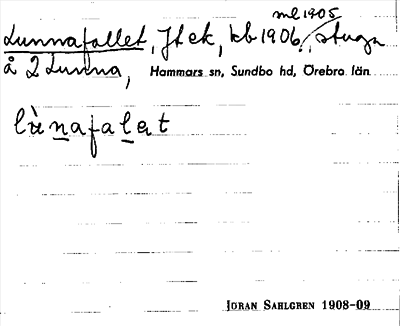 ml 1905
Lunnafallet, Jt ek, kb 1906, stuga
å 2 Lunna, Hammars sn, Sundbo hd, Örebro län
lùnafalat
JÖRAN SAHLGREN 1908-09